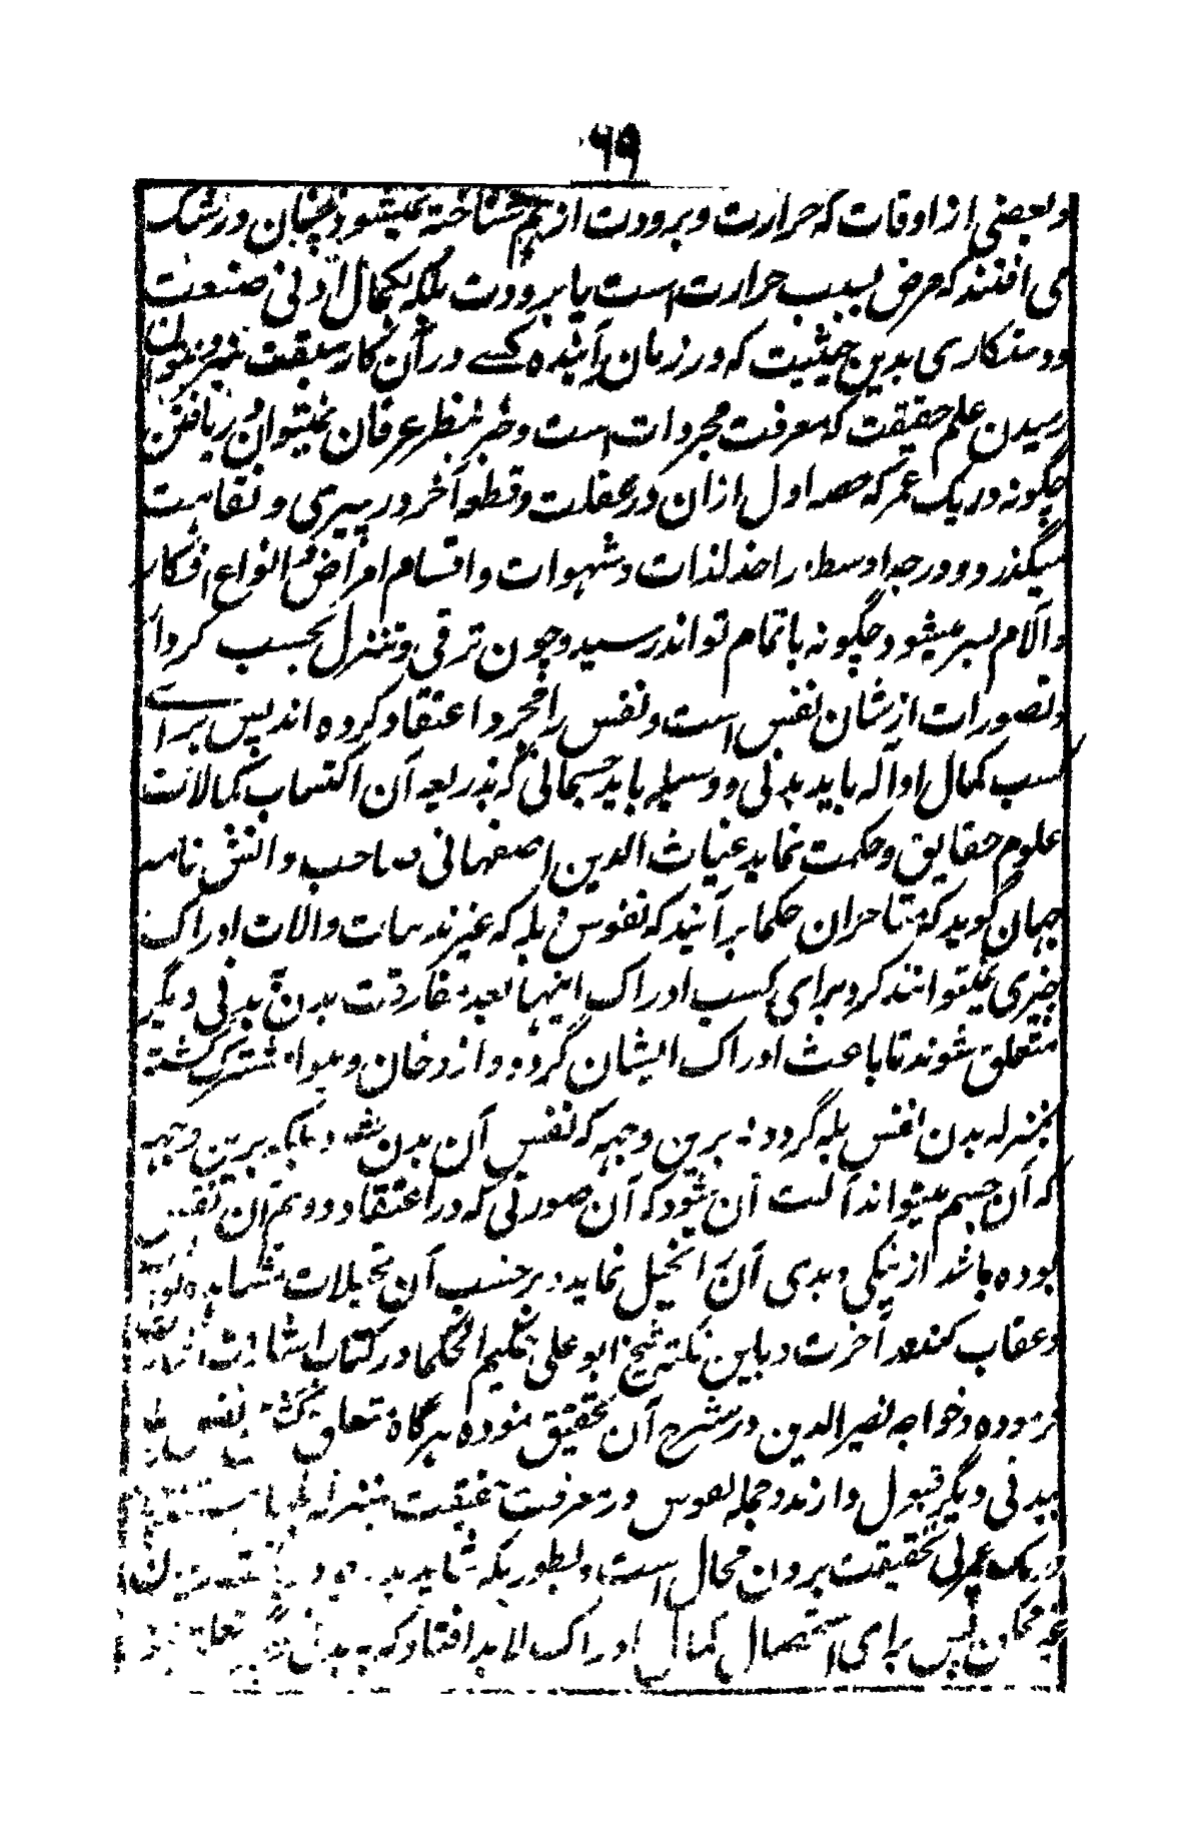 ۶۹
وبعضی از اوقات که حرارت و برودت از هم شناخته نمیشود چنان در شک
می افتند که مرض بسبب حرارت است یا برودت بلکه بکمال ادنی صنعت
ودستکاری بدین حیثیت که در زمان آینده کسے در آن کار سبقت نبرد نتوان
رسیدن علم حقیقت که معرفت مجردات است وجز بنظر عرفان نمیتوان دریافتن
چگونه در یک عمر که حصه اول ازان در غفلت وقطعه آخر در پیری و نقاهت
میگذرد ودرجه اوسط را اخذ لذات وشهوات واقسام امراض وانواع افکار
وآلام بسر میشود چگونه باتمام تواند رسید وچون ترقی وتنزل بحسب کردار
وتصورات از شان نفس است ونفس را مجرد اعتقاد کرده اند پس براے
کسب کمال او آله باید بدنی ووسیله باید جسمانی که بذریعه آن اکتساب کمالات
علوم حقایق وحکمت نماید غیاث الدین اصفهانی صاحب دانش نامه
جهان گوید که متاخران حکما بر آنیند که نفوس بله که غیر ندر سات والات ادراک
چیزی نمیتوانند کرد برای کسب ادراک اینها بعد مفارقت بدن به بدنی دیگر
متعلق شوند تا باعث ادراک ایشان گردد واز دخان وهوا مشترک گشته
بمنزله بدن نفس بله گردد نه برین وجهه که نفس آن بدن شود بلکه برین وجهه
که آن جسم میتواند آلت آن شود که آن صورتی که در اعتقاد ووهم آن نفس
بوده باشد از نیکی وبدی آنرا تخیل نماید وبرحسب آن تخیلات مشاهده ثواب
وعقاب کند در آخرت وباین نکته شیخ ابو علی حکیم الحکما در کتاب اشارات اشاره
فرموده وخواجه نصیر الدین در شرح آن تحقیق نموده هرگاه تعلق گشت نفس
ببدنی دیگر قبول دارند وجمله نفوس در معرفت حقیقت بمنزله
در یک عمر پی بحقیقت بردن محال است وبطوریکه شاید
غیر ممکن پس برای استحصال کمال ادراک لابد افتاد که به بدنی